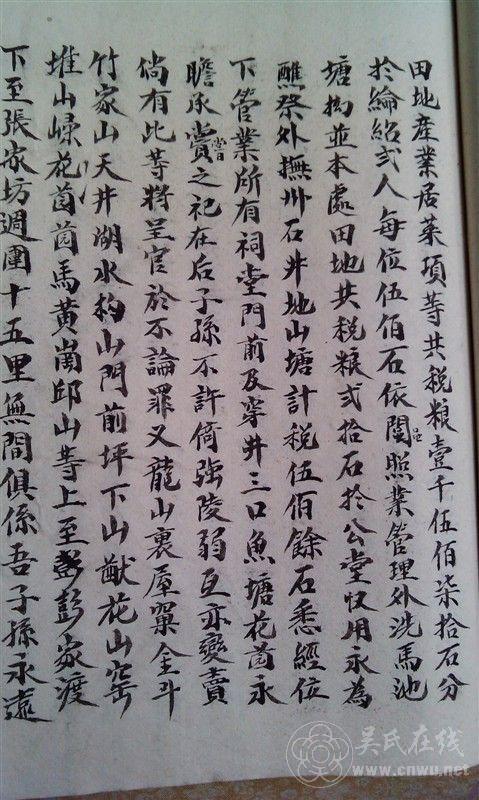 田地產業居菜項等共稅粮壹千伍佰柒拾石分
於綸紹弍人每位伍佰石依鬮照業管理外洗馬池
塘抅並本處田地共稅粮弍拾石於公堂収用永為
醮祭外撫州石井地山塘計稅伍佰餘石悉經位
下管業所有祠堂門前及穿井三口魚塘花茵永
瞻承嘗之祀在后子孫不許倚強陵弱互亦變賣
倘有比等將呈官於不論罪又龍山裏屋窠金斗
竹家山天井湖水杓山門前坪下山猷花山窑
堆山嶸花茵茵馬黄崗邱山等上至彭家渡
下至張家坊週圍十五里無間俱係吾子孫永遠
吴氏在线
www.cnwu.net